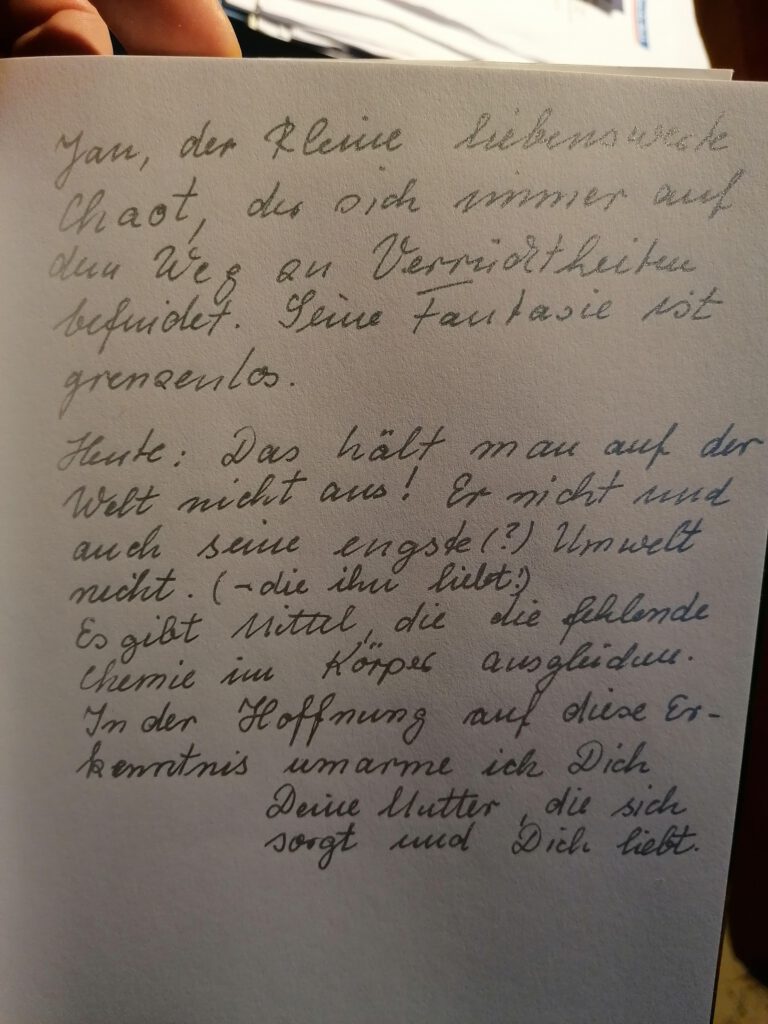 Jan, der kleine liebenswerte
Chaot, der sich immer auf
dem Weg zu Verrücktheiten
befindet. Seine Fantasie ist
grenzenlos.
Heute: Das hält man auf der
Welt nicht aus! Er nicht und
auch seine engste(?) Umwelt
nicht. (-die ihn liebt!)
Es gibt Mittel, die die fehlende
Chemie im Körper ausgleichen.
In der Hoffnung auf diese Er-
kenntnis umarme ich Dich
Deine Mutter, die sich
sorgt und Dich liebt.